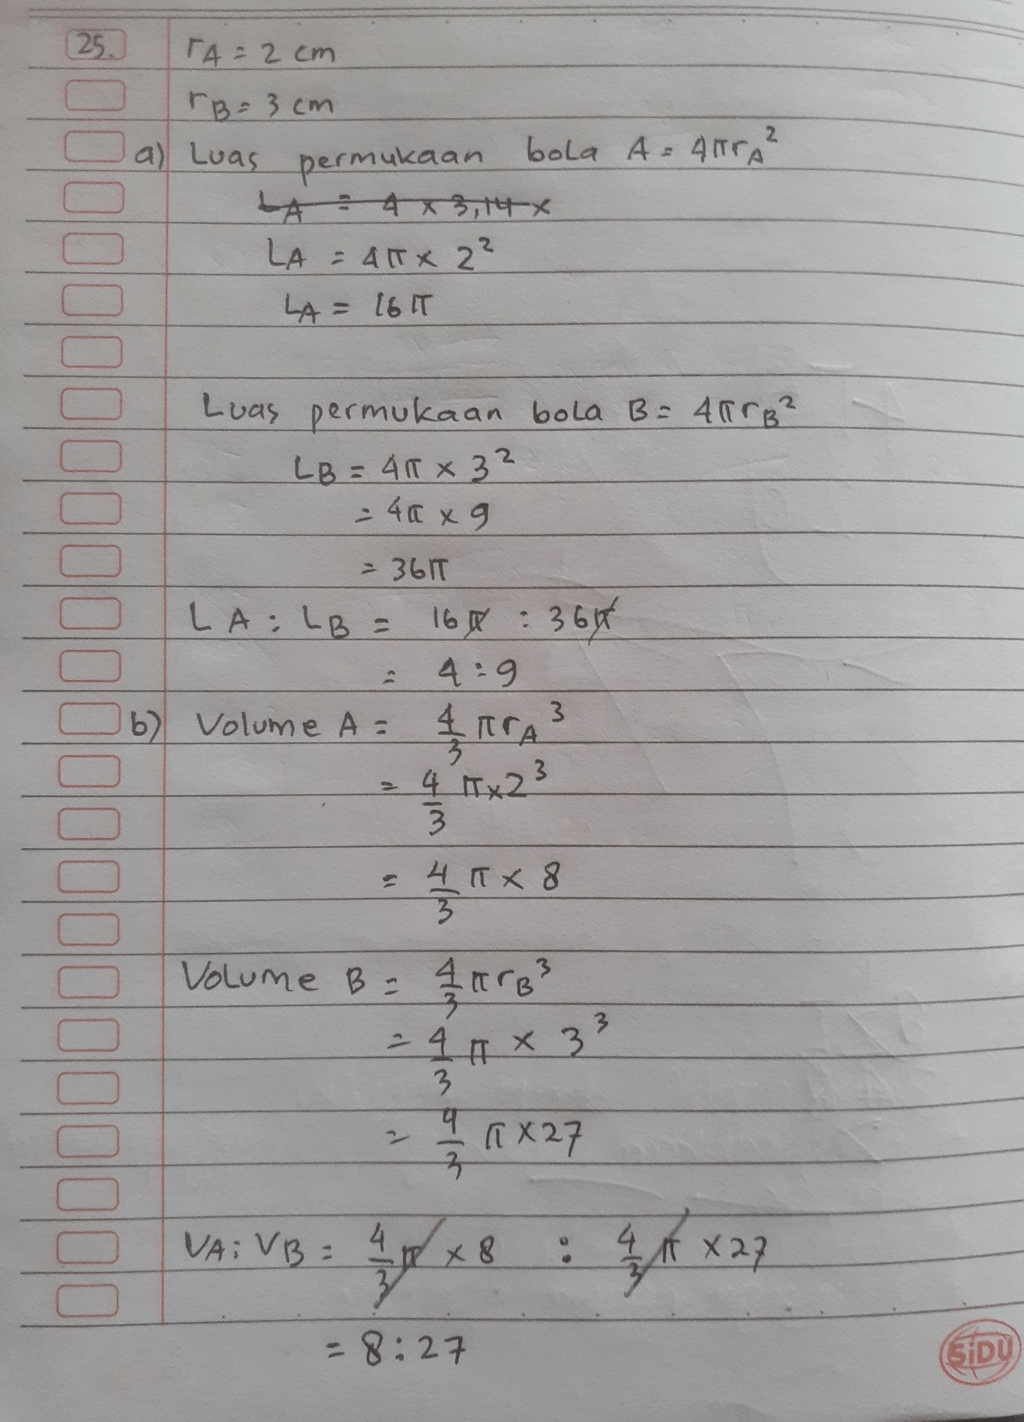 25. rA = 2 cm
rB = 3 cm
a) Luas permukaan bola A = 4πrA²
LA = 4 × 3,14 ×
LA = 4π × 2²
LA = 16π
Luas permukaan bola B = 4πrB²
LB = 4π × 3²
= 4π × 9
= 36π
LA : LB = 16π : 36π
= 4 : 9
b) Volume A = 4/3 πrA³
= 4/3 π×2³
= 4/3 π × 8
Volume B = 4/3 πrB³
= 4/3 π × 3³
= 4/3 π × 27
VA : VB = 4/3 π × 8 : 4/3 π × 27
= 8 : 27
SiDU